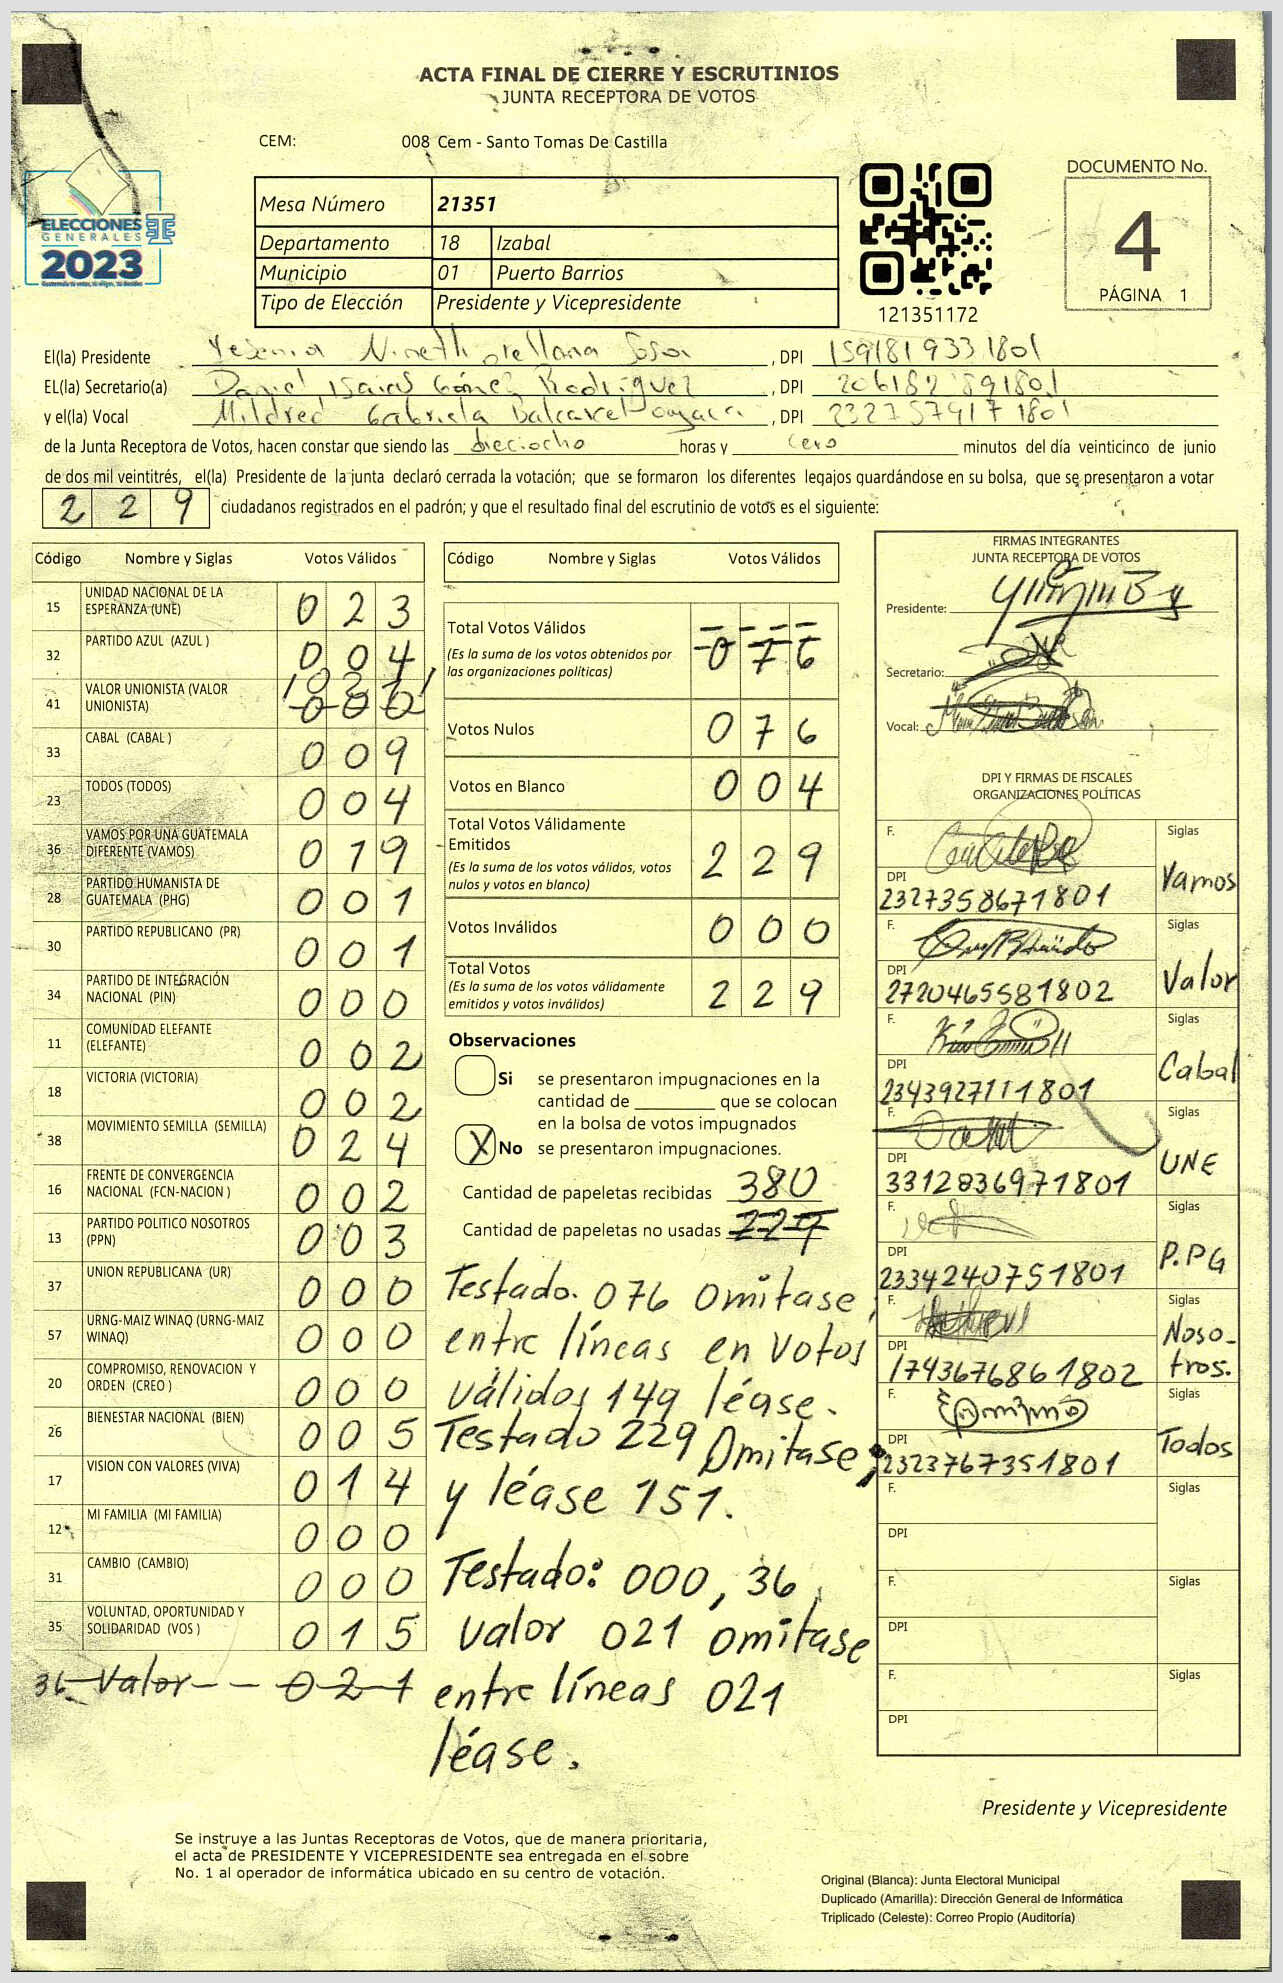 ACTA FINAL DE CIERRE Y ESCRUTINIOS
JUNTA RECEPTORA DE VOTOS
CEM: 008 Cem - Santo Tomas De Castilla
ELECCIONES
GENERALES
2023
Mesa Número 21351
Departamento 18 Izabal
Municipio 01 Puerto Barrios
Tipo de Elección Presidente y Vicepresidente
121351172
DOCUMENTO No.
4
PÁGINA 1
El(la) Presidente Yesenia Nineth orellana Sosa, DPI 159181933 1801
EL(la) Secretario(a) Daniel Isaias Gómez Rodriguez, DPI
y el(la) Vocal Mildred Gabriela Balcarcel, DPI 232757917 1801
de la Junta Receptora de Votos, hacen constar que siendo las dieciocho horas y cero minutos del día veinticinco de junio
de dos mil veintitrés, el(la) Presidente de la junta declaró cerrada la votación; que se formaron los diferentes legajos guardándose en su bolsa, que se presentaron a votar
229 ciudadanos registrados en el padrón; y que el resultado final del escrutinio de votos es el siguiente:
Código Nombre y Siglas Votos Válidos
15 UNIDAD NACIONAL DE LA ESPERANZA (UNE) 023
32 PARTIDO AZUL (AZUL ) 004
41 VALOR UNIONISTA (VALOR UNIONISTA) 021 000
33 CABAL (CABAL ) 009
23 TODOS (TODOS) 004
36 VAMOS POR UNA GUATEMALA DIFERENTE (VAMOS) 019
28 PARTIDO HUMANISTA DE GUATEMALA (PHG) 001
30 PARTIDO REPUBLICANO (PR) 001
34 PARTIDO DE INTEGRACIÓN NACIONAL (PIN) 000
11 COMUNIDAD ELEFANTE (ELEFANTE) 002
18 VICTORIA (VICTORIA) 002
38 MOVIMIENTO SEMILLA (SEMILLA) 024
16 FRENTE DE CONVERGENCIA NACIONAL (FCN-NACION ) 002
13 PARTIDO POLITICO NOSOTROS (PPN) 003
37 UNION REPUBLICANA (UR) 000
57 URNG-MAIZ WINAQ (URNG-MAIZ WINAQ) 000
20 COMPROMISO, RENOVACION Y ORDEN (CREO ) 000
26 BIENESTAR NACIONAL (BIEN) 005
17 VISION CON VALORES (VIVA) 014
12 MI FAMILIA (MI FAMILIA) 000
31 CAMBIO (CAMBIO) 000
35 VOLUNTAD, OPORTUNIDAD Y SOLIDARIDAD (VOS ) 015
36 Valor -- 021
Código Nombre y Siglas Votos Válidos
Total Votos Válidos 076
(Es la suma de los votos obtenidos por las organizaciones políticas)
Votos Nulos 076
Votos en Blanco 004
Total Votos Válidamente Emitidos 229
(Es la suma de los votos válidos, votos nulos y votos en blanco)
Votos Inválidos 000
Total Votos 229
(Es la suma de los votos válidamente emitidos y votos inválidos)
Observaciones
Si se presentaron impugnaciones en la
cantidad de ________ que se colocan
en la bolsa de votos impugnados
X No se presentaron impugnaciones.
Cantidad de papeletas recibidas 380
Cantidad de papeletas no usadas
Testado. 076 Omitase;
entre líneas en Votos
válidos 149 léase.
Testado 229 Omitase;
y léase 151.
Testado: 000, 36,
valor 021 omitase
entre líneas 021
léase.
FIRMAS INTEGRANTES
JUNTA RECEPTORA DE VOTOS
Presidente:
Secretario:
Vocal:
DPI Y FIRMAS DE FISCALES
ORGANIZACIONES POLÍTICAS
F. Siglas
DPI 2327358671801 Vamos
F. Siglas
DPI 2720465581802 Valor
F. Siglas
DPI 2343927111801 Cabal
F. Siglas
DPI 3312836971801 UNE
F. Siglas
DPI 2334240751801 P.PG
F. Siglas
DPI 1743676861802 Noso-
tros.
F. Siglas
DPI 2323767351801 Todos
F. Siglas
DPI
F. Siglas
DPI
F. Siglas
DPI
Presidente y Vicepresidente
Se instruye a las Juntas Receptoras de Votos, que de manera prioritaria,
el acta de PRESIDENTE Y VICEPRESIDENTE sea entregada en el sobre
No. 1 al operador de informática ubicado en su centro de votación.
Original (Blanca): Junta Electoral Municipal
Duplicado (Amarilla): Dirección General de Informática
Triplicado (Celeste): Correo Propio (Auditoría)